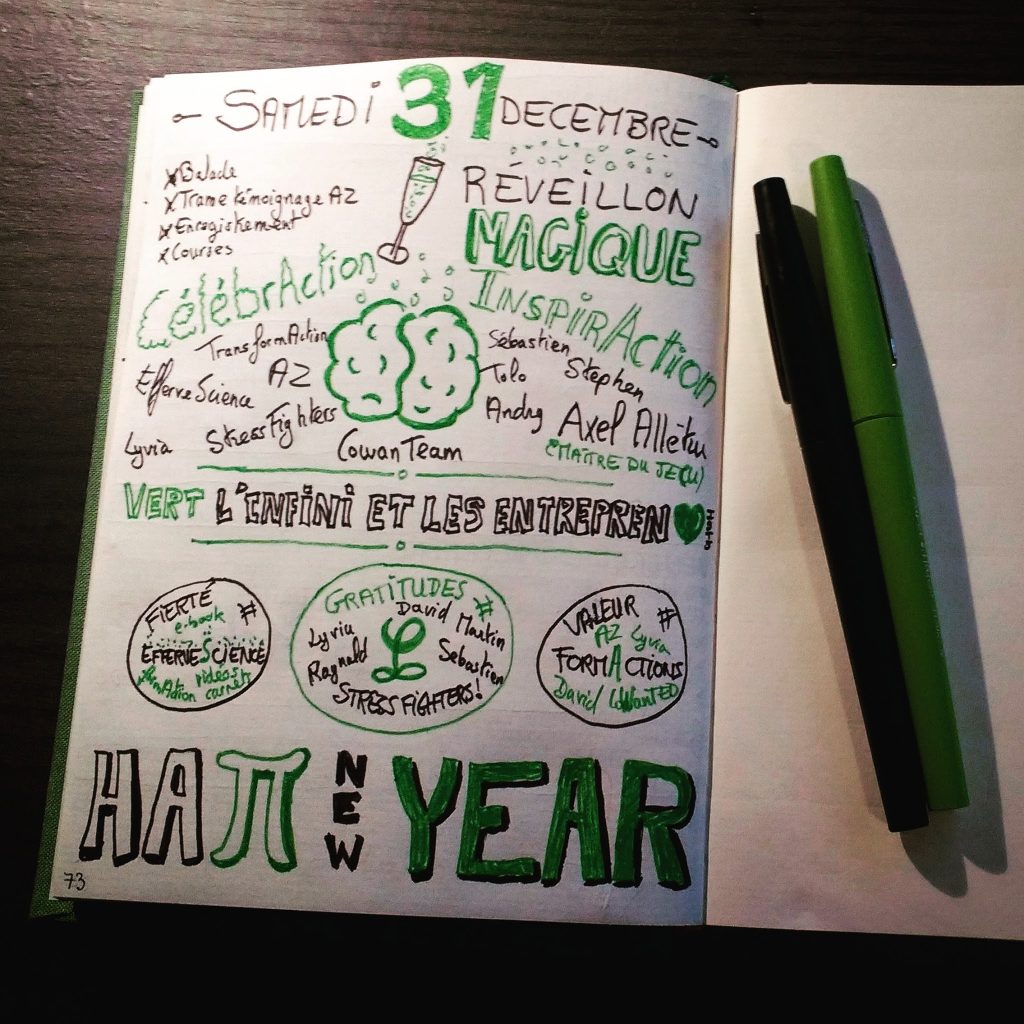 SAMEDI 31 DECEMBRE
x Balade
x Trame témoignage AZ
x Enregistrement
x Courses
RÉVEILLON
MAGIQUE
CélébrAction
InspirAction
TransformAction
EfferveScience
AZ
Lyvia
StressFighters
CowanTeam
Sébastien
Stephen
Tolo
Andry
Axel Allétru
(MAÎTRE DU JE(U)
VERT L'INFINI ET LES ENTREPREN
FIERTÉ #
e-book
EFFERVESCIENCE
videos
carnets
GRATITUDES #
David Martin
Lyvia
Raynald
Sébastien
STRESS FIGHTERS!
VALEUR #
AZ Lyvia
FORMACTIONS
David
HAπ NEW YEAR
73